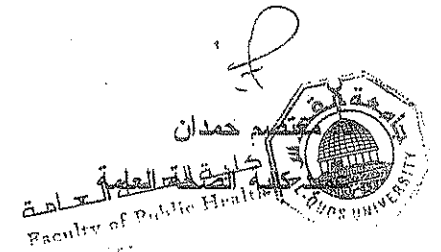 معتصم حمدان
كلية الصحة العامة
كلية الصحة العامة
Faculty of Public Health
جامعة القدس
AL-QUDS UNIVERSITY